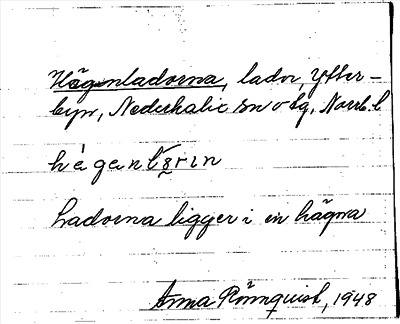 Hägenladorna, lador, Ytter-
byn, Nederkalix sn o tg, Norrb. l
hägen
Ladorna ligger i en hägna
Anna Rönnquist, 1948